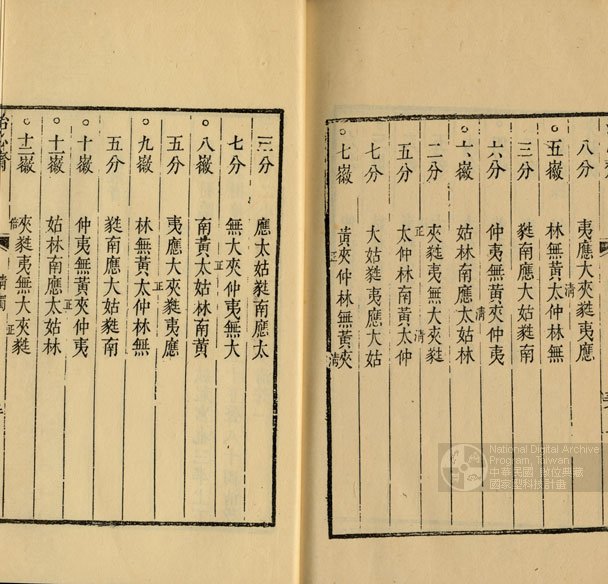 八分 夷應大夾蕤夷應
清
五徽 林無黃太仲林無
三分 蕤南應大姑蕤南
六分 仲夷無黃夾仲夷
清
六徽 姑林南應太姑林
二分 夾蕤夷無大夾蕤
正 清
五分 太仲林南黃太仲
七分 大姑蕤夷應大姑
七徽 黃夾仲林無黃夾
正 清
三分 應太姑蕤南應太
七分 無大夾仲夷無大
正
八徽 南黃太姑林南黃
五分 夷應大夾蕤夷應
正
九徽 林無黃太仲林無
五分 蕤南應大姑蕤南
十徽 仲夷無黃夾仲夷
正
十一徽 姑林南應太姑林
十二徽 夾蕤夷無大夾蕤
倍 正
清濁
National Digital Archive
Program, Taiwan
中華民國 數位典藏
國家型科技計畫